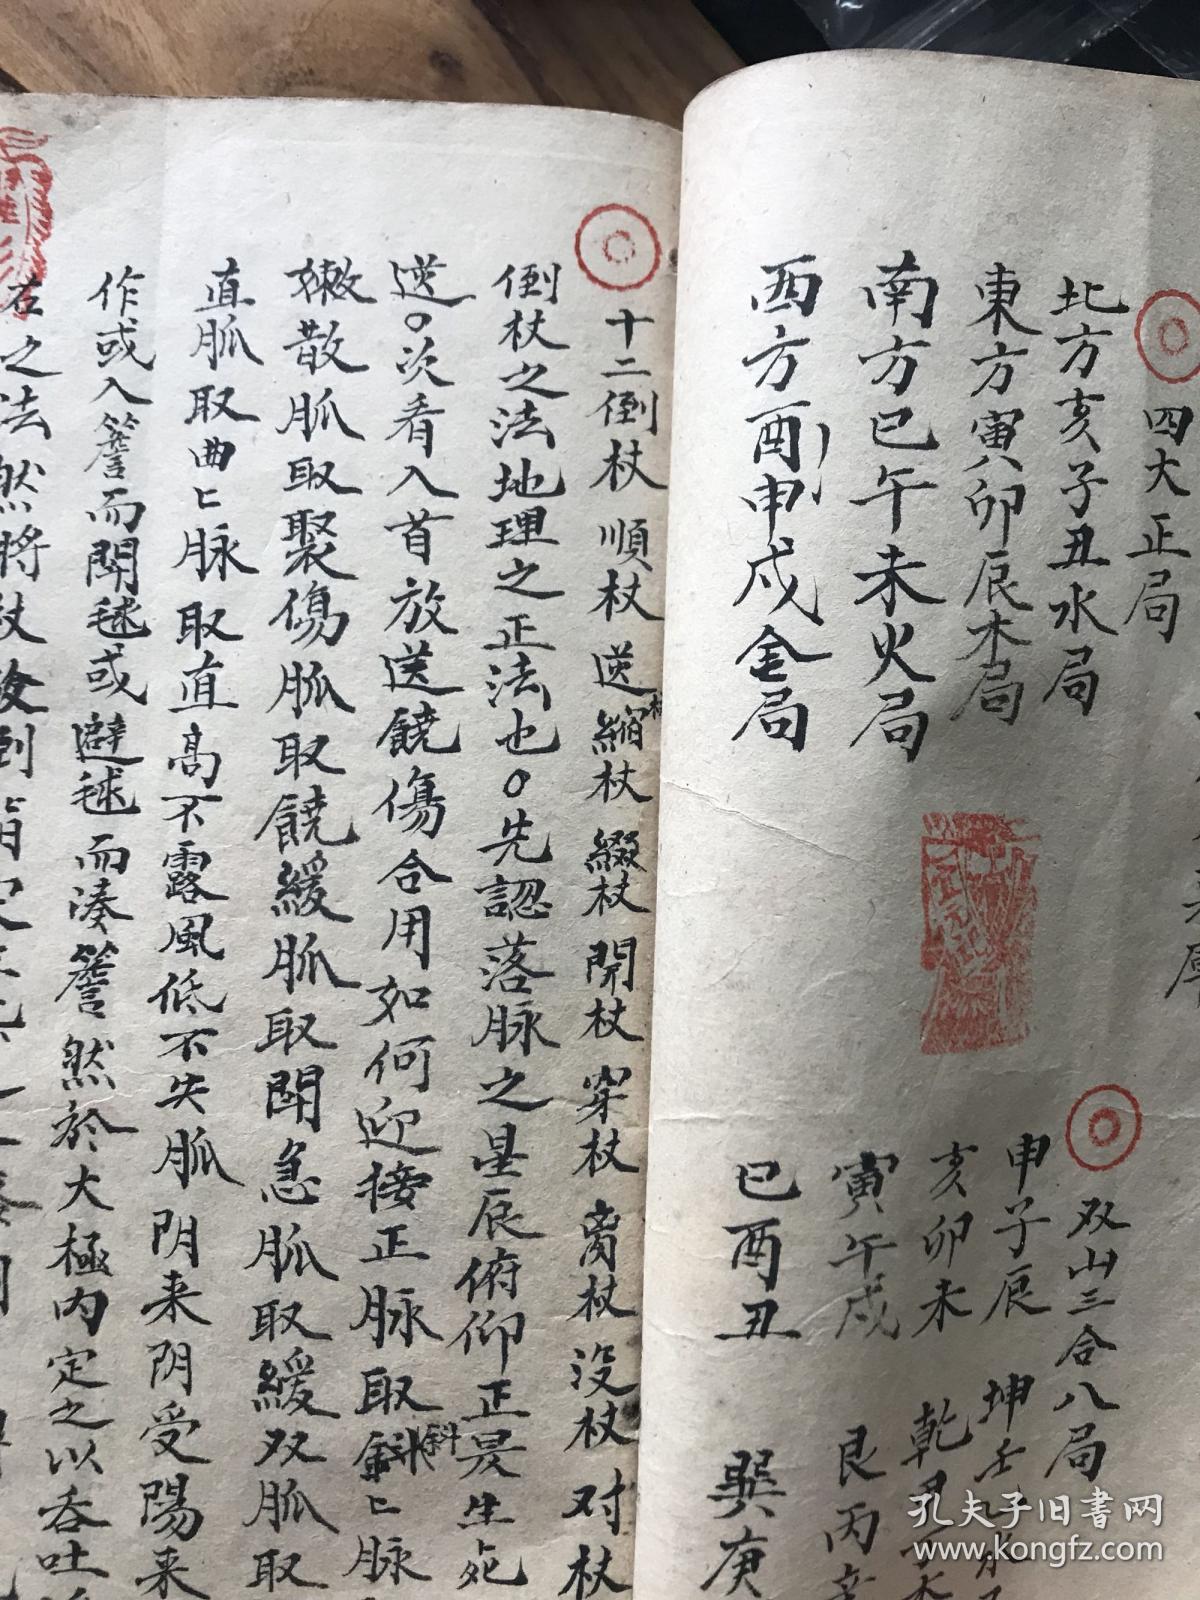 四大正局
北方亥子丑水局
東方寅卯辰木局
南方巳午未火局
西方酉申戍金局
双山三合八局
申子辰 坤壬
亥卯未 乾
寅午戍 艮丙辛
巳酉丑 巽庚
十二倒杖 順杖 逆杖 縮杖 綴杖 開杖 穿杖 离杖 没杖 对杖
倒杖之法地理之正法也○先認落脉之星辰俯仰正昃生死
逆○次看入首放送饒傷合用如何迎接正脉取斜〻脉
嫩散脈取聚傷脈取饒緩脈取鬪急脈取緩双脈取
直脈取曲〻脉取直高不露風低不失脈阴来阴受陽来
作或入簷而鬪毬或避毬而湊簷然於大極内定之以吞吐
之法然將杖
孔夫子旧书网
www.kongfz.com